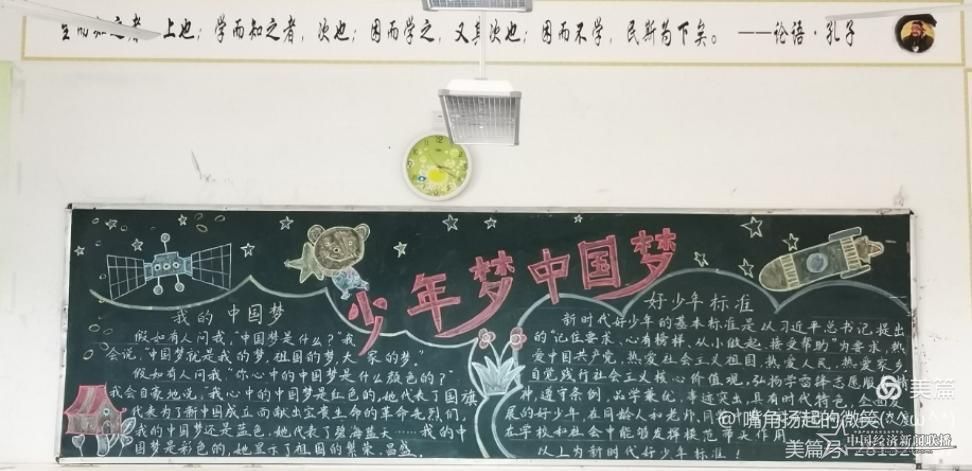 上也；学而知之者，次也；困而学之，又其次也；困而不学，民斯为下矣。 ——论语·孔子
少年梦中国梦
我的中国梦
假如有人问我，“中国梦是什么？”我
会说，“中国梦就是我的梦，祖国的梦，大家的梦。”
假如有人问我“你心中的中国梦是什么颜色的？”
我会自豪地说，我心中的中国梦是红色的，她代表了国旗
代表为了新中国成立而献出宝贵生命的革命先烈们，
我的中国梦还是蓝色，她代表了碧海蓝天……我的中
国梦是彩色的，她显示了祖国的繁荣、昌盛。
好少年标准
新时代好少年的基本标准是从习近平总书记提出
的“记住要求、心有榜样、从小做起、接受帮助”为要求，热
爱中国共产党，热爱社会主义祖国，热爱人民，热爱家乡，
自觉践行社会主义核心价值观，弘扬学雷锋志愿服
神，遵守条例，品学兼优，事迹突出，具有时代特色，全面发
展的好少年，在同龄人和老师，同
在学校和社会中能够发挥模范带头作用
以上为新时代好少年标准！
美篇
嘴角扬起的微笑
美篇号
中国经济新闻联播